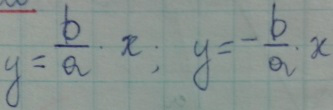 y = b/a · x; y = - b/a · x